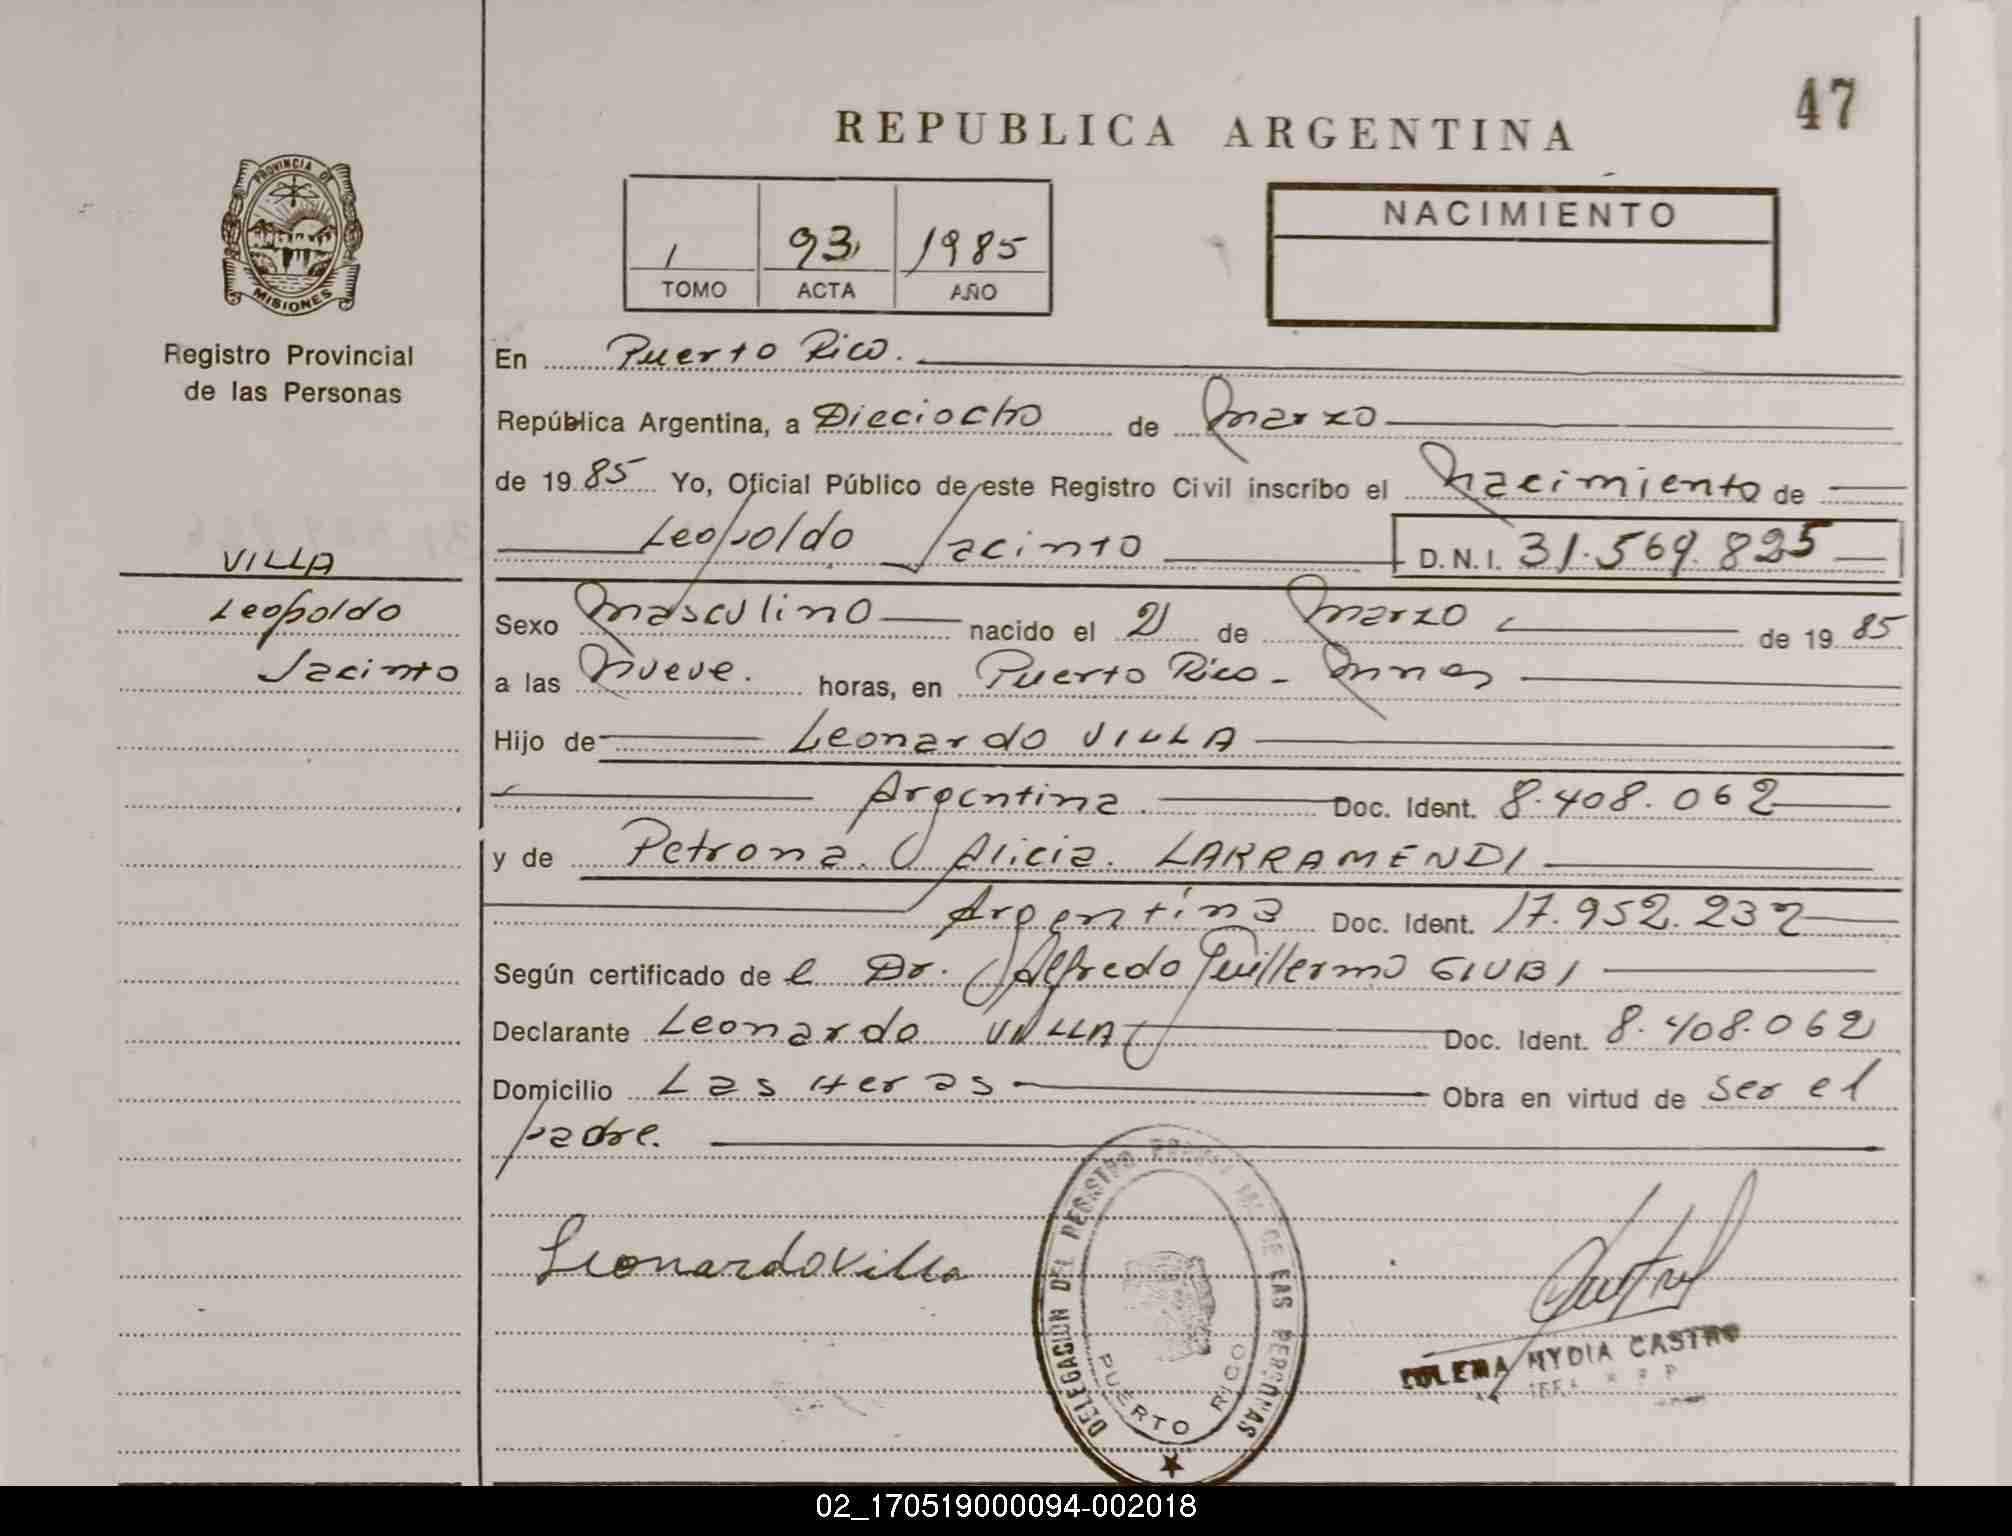 47
REPUBLICA ARGENTINA
PROVINCIA DE
MISIONES
Registro Provincial
de las Personas
1 93 1985
TOMO ACTA AÑO
NACIMIENTO
En Puerto Rico.
República Argentina, a Dieciocho de Marzo
de 1985 Yo, Oficial Público de este Registro Civil inscribo el Nacimiento de
Leopoldo Jacinto D.N.I. 31.569.825
VILLA
Leopoldo
Jacinto
Sexo Masculino nacido el 2 de Marzo de 1985
a las Nueve. horas, en Puerto Rico - Mnes
Hijo de Leonardo VILLA
Argentina. Doc. Ident. 8.408.062
y de Petrona Alicia LARRAMENDI
Argentina Doc. Ident. 17.952.232
Según certificado de l Dr. Alfredo Guillermo GIUBI
Declarante Leonardo VILLA Doc. Ident. 8.408.062
Domicilio Las Heras Obra en virtud de ser el
padre.
Leonardo Villa
DELEGACION DEL REGISTRO DE LAS PERSONAS
PUERTO RICO
MYDIA CASTRO
02_170519000094-002018